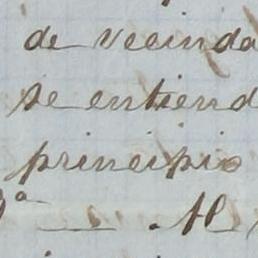 de vecinda
se entiend
principio
Al